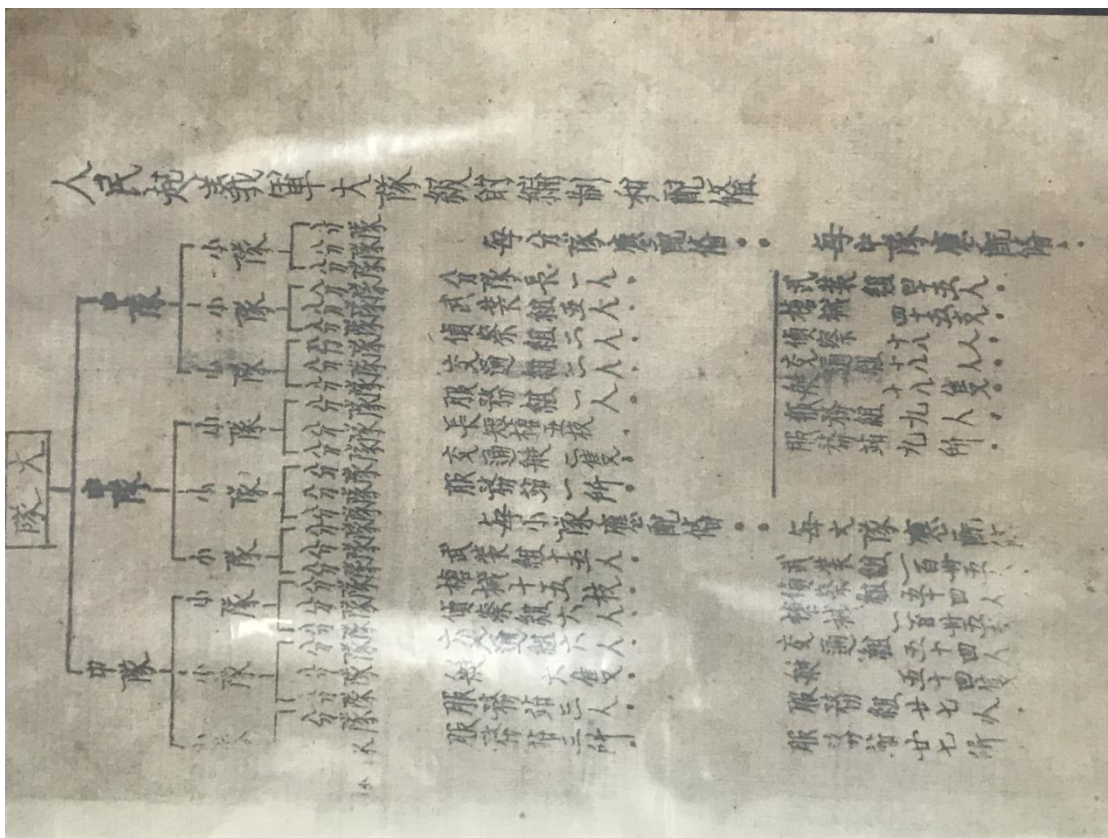 人民起義軍大隊級的編制和配備
大隊
中隊 中隊 中隊
小隊 小隊 小隊 小隊 小隊 小隊 小隊 小隊
分隊 分隊 分隊 分隊 分隊 分隊 分隊 分隊 分隊 分隊 分隊 分隊 分隊 分隊 分隊 分隊 分隊 分隊 分隊 分隊 分隊 分隊 分隊 分隊
每分隊應配備:
分隊長一人。
武裝組五人。
偵察組二人。
交通組二人。
服務組一人。
長短槍五枝。
交通船二隻。
服務站一所。
每小隊應配備:
武裝組十五人。
槍械十五枝。
偵察組六人。
交通組六人。
船六隻。
服務站三人。
服務站三所。
每中隊應配備:
武裝組四十五人。
槍械四十五支。
偵察組十八人。
交通組十八人。
船十八隻。
服務組九人。
服務站九所。
每大隊應配備
武裝組一百卅五人
偵察組五十四人
槍械一百卅五
交通組五十四人
船五十四隻
服務組廿七人
服務站廿七所